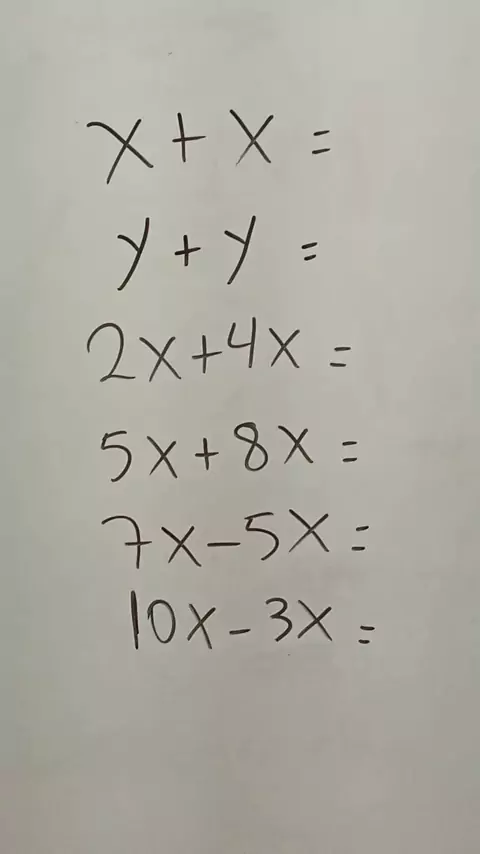 x + x =
y + y =
2x + 4x =
5x + 8x =
7x - 5x =
10x - 3x =